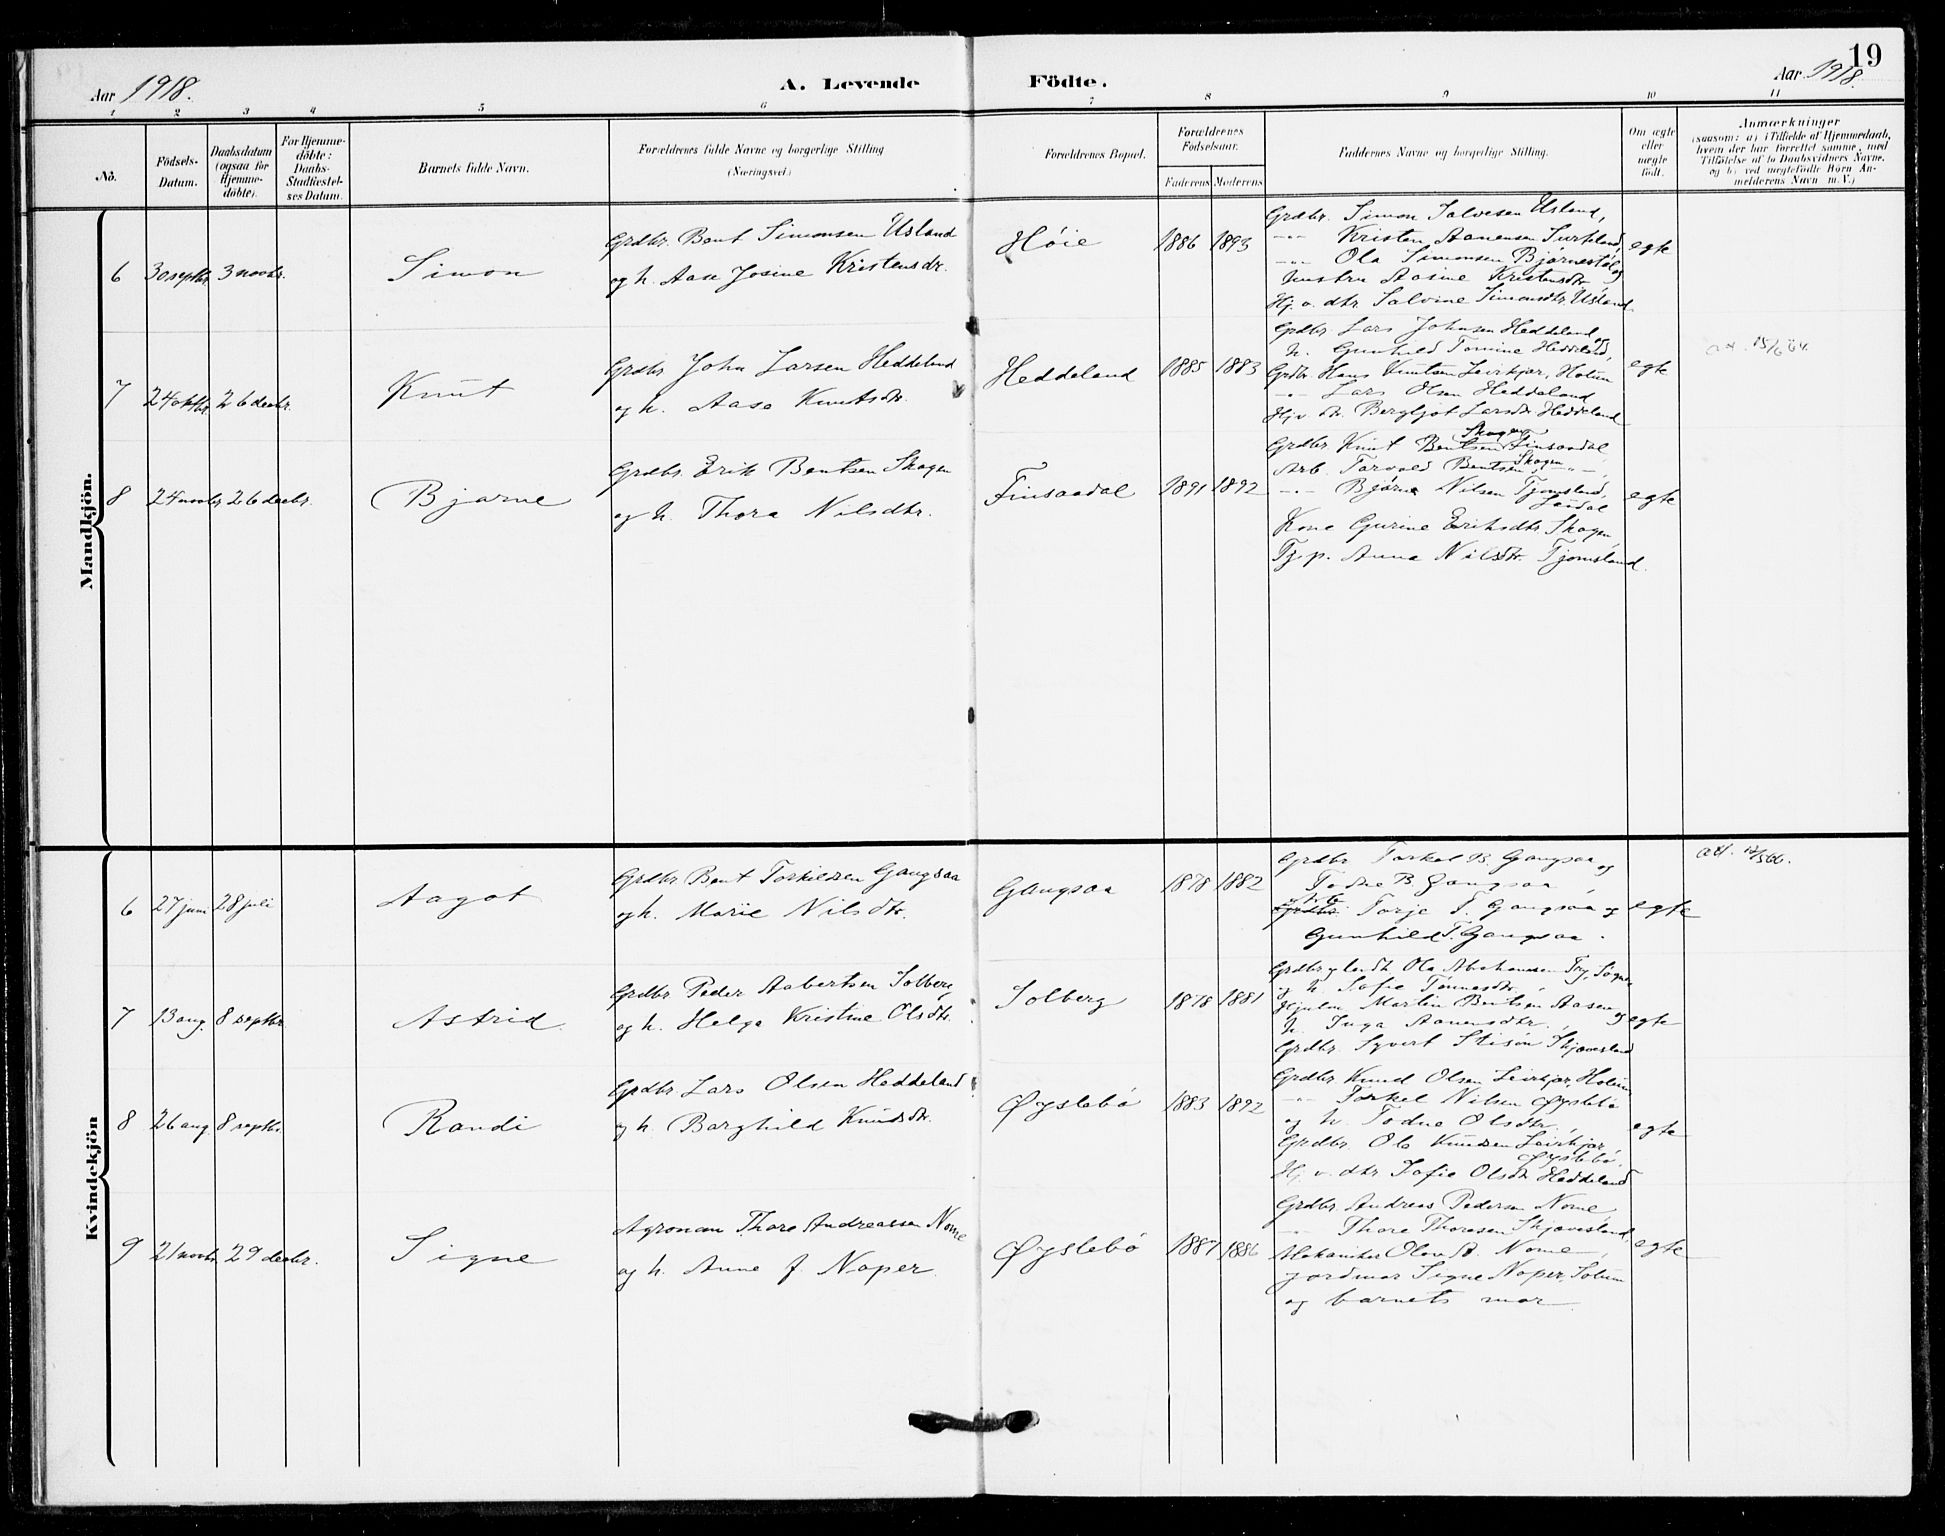 19
Aar 1918.
A. Levende Födte.
Aar 1918.
1 2 3 4 5 6 7 8 9 10 11
No.
Födsels-
Datum.
Daabsdatum
(ogsaa for
Hjemme-
döbte).
For Hjemme-
döbte:
Daabs-
Stadfæstel-
ses Datum.
Barnets fulde Navn.
Forældrenes fulde Navne og borgerlige Stilling
(Næringsvei.)
Forældrenes Bopæl.
Forældrenes
Fødselsaar.
Faderens Moderens
Faddernes Navne og borgerlige Stilling.
Om ægte
eller
uægte
født.
Anmærkninger
(saasom: a) i Tilfælde af Hjemmedaab,
hvem der har forrettet samme, med
Tilföielse af to Daabsvidners Navne,
og b) ved uægtefödte Börn An-
melderens Navn m. V.)
Mandkjön.
6 30 septbr. 3 novbr.
Simon
Grdbr. Bent Simonsen Usland
og h. Aase Josine Kristensdr.
Høie
1886 1893
Grdbr. Simon Salvesen Usland,
-"- Kristen Aanensen Surkland,
-"- Ola Simonsen Bjørnestøl og
hustru Aasine Kristensdtr.
Hj. v. dtr. Salvine Simonsdtr. Usland
egte
7 24 oktbr. 26 decbr.
Knut
Grdbr. John Larsen Heddeland
og h. Aasa Knutsdtr.
Heddeland
1885 1883
Grdbr. Lars Johnsen Heddeland, og
h. Gunhild Tomine Heddeland,
Grdbr. Hans Knutsen Leirkjær, Holum
-"- Lars Olsen Heddeland
Hj. v. dtr. Bergljot Larsdtr. Heddeland
egte
att. 15/6 64.
8 24 novbr. 26 decbr.
Bjarne
Grdbr. Erik Bentsen Skogen
og h. Thora Nilsdtr.
Finsaadal
1891 1892
Grdbr. Knut Bentsen Skogen Finsaadal
Arb. Torvald Bentsen Skogen -"-
-"- Bjarne Nilsen Tjomsland,
Kone Gurine Eriksdtr. Skogen,
Tj. p. Anna Nilsdtr. Tjomsland.
egte
Kvindekjön
6 27 juni 28 juli
Aagot
Grdbr. Bent Torkildsen Gangsaa
og h. Marie Nilsdtr.
Gangsaa
1878 1882
Grdbr. Torkel B. Gangsaa og
Todne B. Gangsaa
Grdbr. Torje T. Gangsaa og
Gunhild T. Gangsaa.
egte
att. 12/5 66.
7 13 aug. 8 septbr.
Astrid.
Grdbr. Peder Aabertsen Solberg
og h. Helga Kristine Olsdtr.
Solberg
1878 1881
Grdbr. Ola Abrahamsen Try, Søgne
og h. Sofie Tønnesdtr.,
Hjulm. Martin Bentsen Aasen og
h. Inga Aanensdtr.,
Grdbr. Syvert Skjævesland
egte
8 26 aug. 8 septbr.
Randi
Grdbr. Lars Olsen Heddeland
og h. Borghild Knudsdtr.
Øyslebø
1883 1892
Grdbr. Knud Olsen Leirkjær, Holum
-"- Torkel Nilsen Øyslebø
og h. Todne Olsdtr.,
Grdbr. Ola Knudsen Leirkjær,
Øyslebø,
Hj. v. dtr. Sofie Olsdtr. Heddeland
egte
9 21 novbr. 29 decbr.
Signe
Agronom Thore Andreassen Nome
og h. Anne f. Noper.
Øyslebø
1887 1886
Grdbr. Andreas Pedersen Nome,
-"- Thore Thoresen Skjævesland,
Mekaniker Olav A. Nome,
jordmor Signe Noper,
og barnets mor.
egte